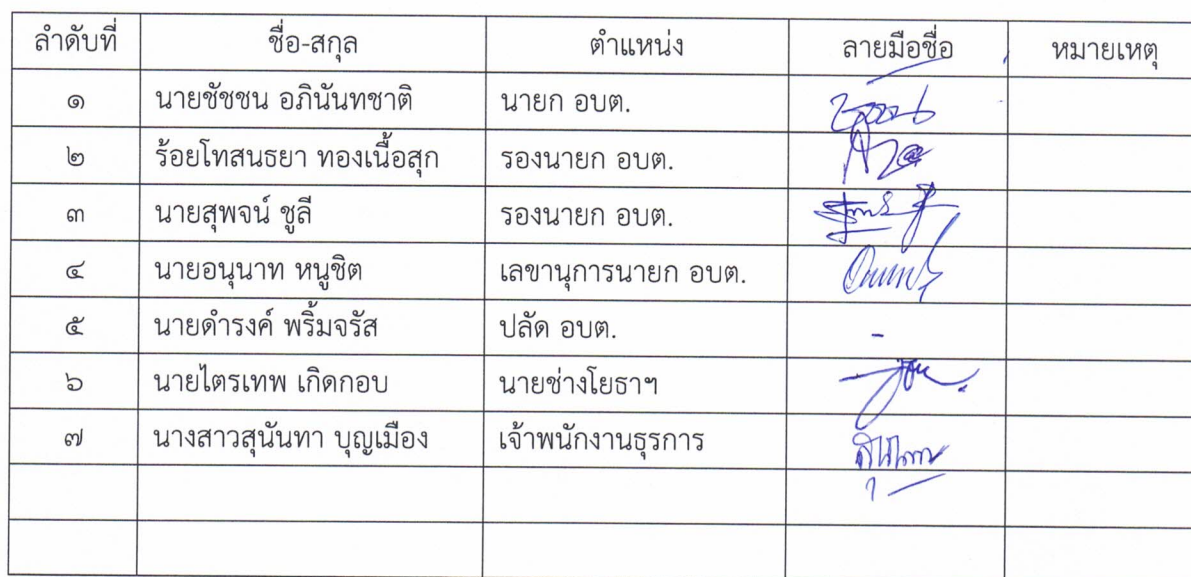 ลำดับที่ ชื่อ-สกุล ตำแหน่ง ลายมือชื่อ หมายเหตุ
๑ นายชัชชน อภินันทชาติ นายก อบต.
๒ ร้อยโทสนธยา ทองเนื้อสุก รองนายก อบต.
๓ นายสุพจน์ ชูลี รองนายก อบต.
๔ นายอนุนาท หนูชิต เลขานุการนายก อบต.
๕ นายดำรงค์ พริ้มจรัส ปลัด อบต. -
๖ นายไตรเทพ เกิดกอบ นายช่างโยธาฯ
๗ นางสาวสุนันทา บุญเมือง เจ้าพนักงานธุรการ